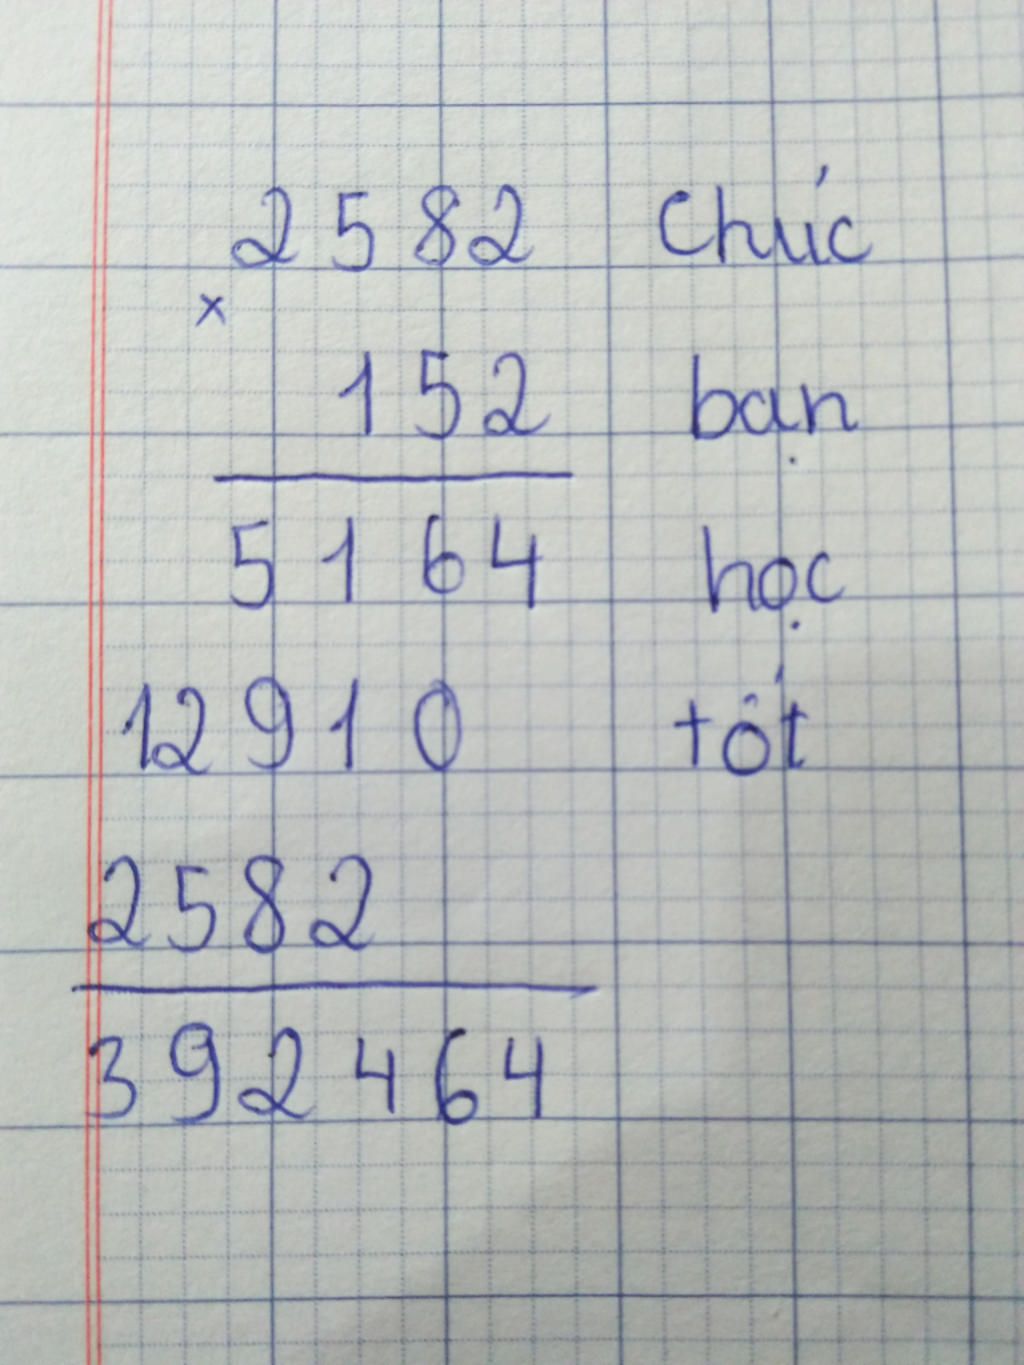 2582 Chúc
×
152 bạn
5164 học
12910 tốt
2582
392464